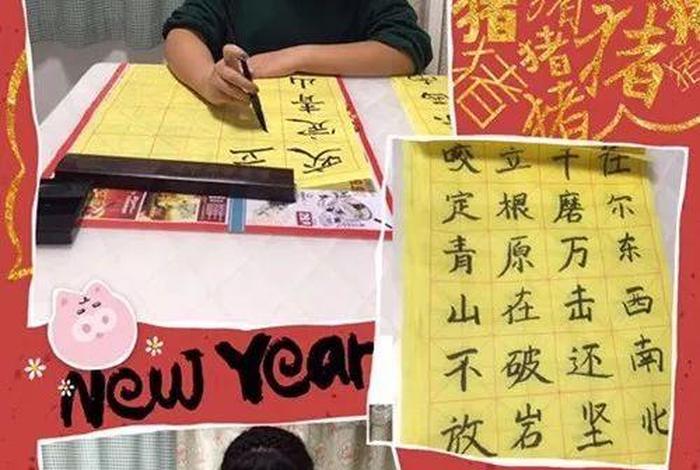 猪
猪
猪
猪
猪
春
咬定青山
立
咬定青山不放
立根原在破岩
千磨万击还坚
任尔东西南北
New Year